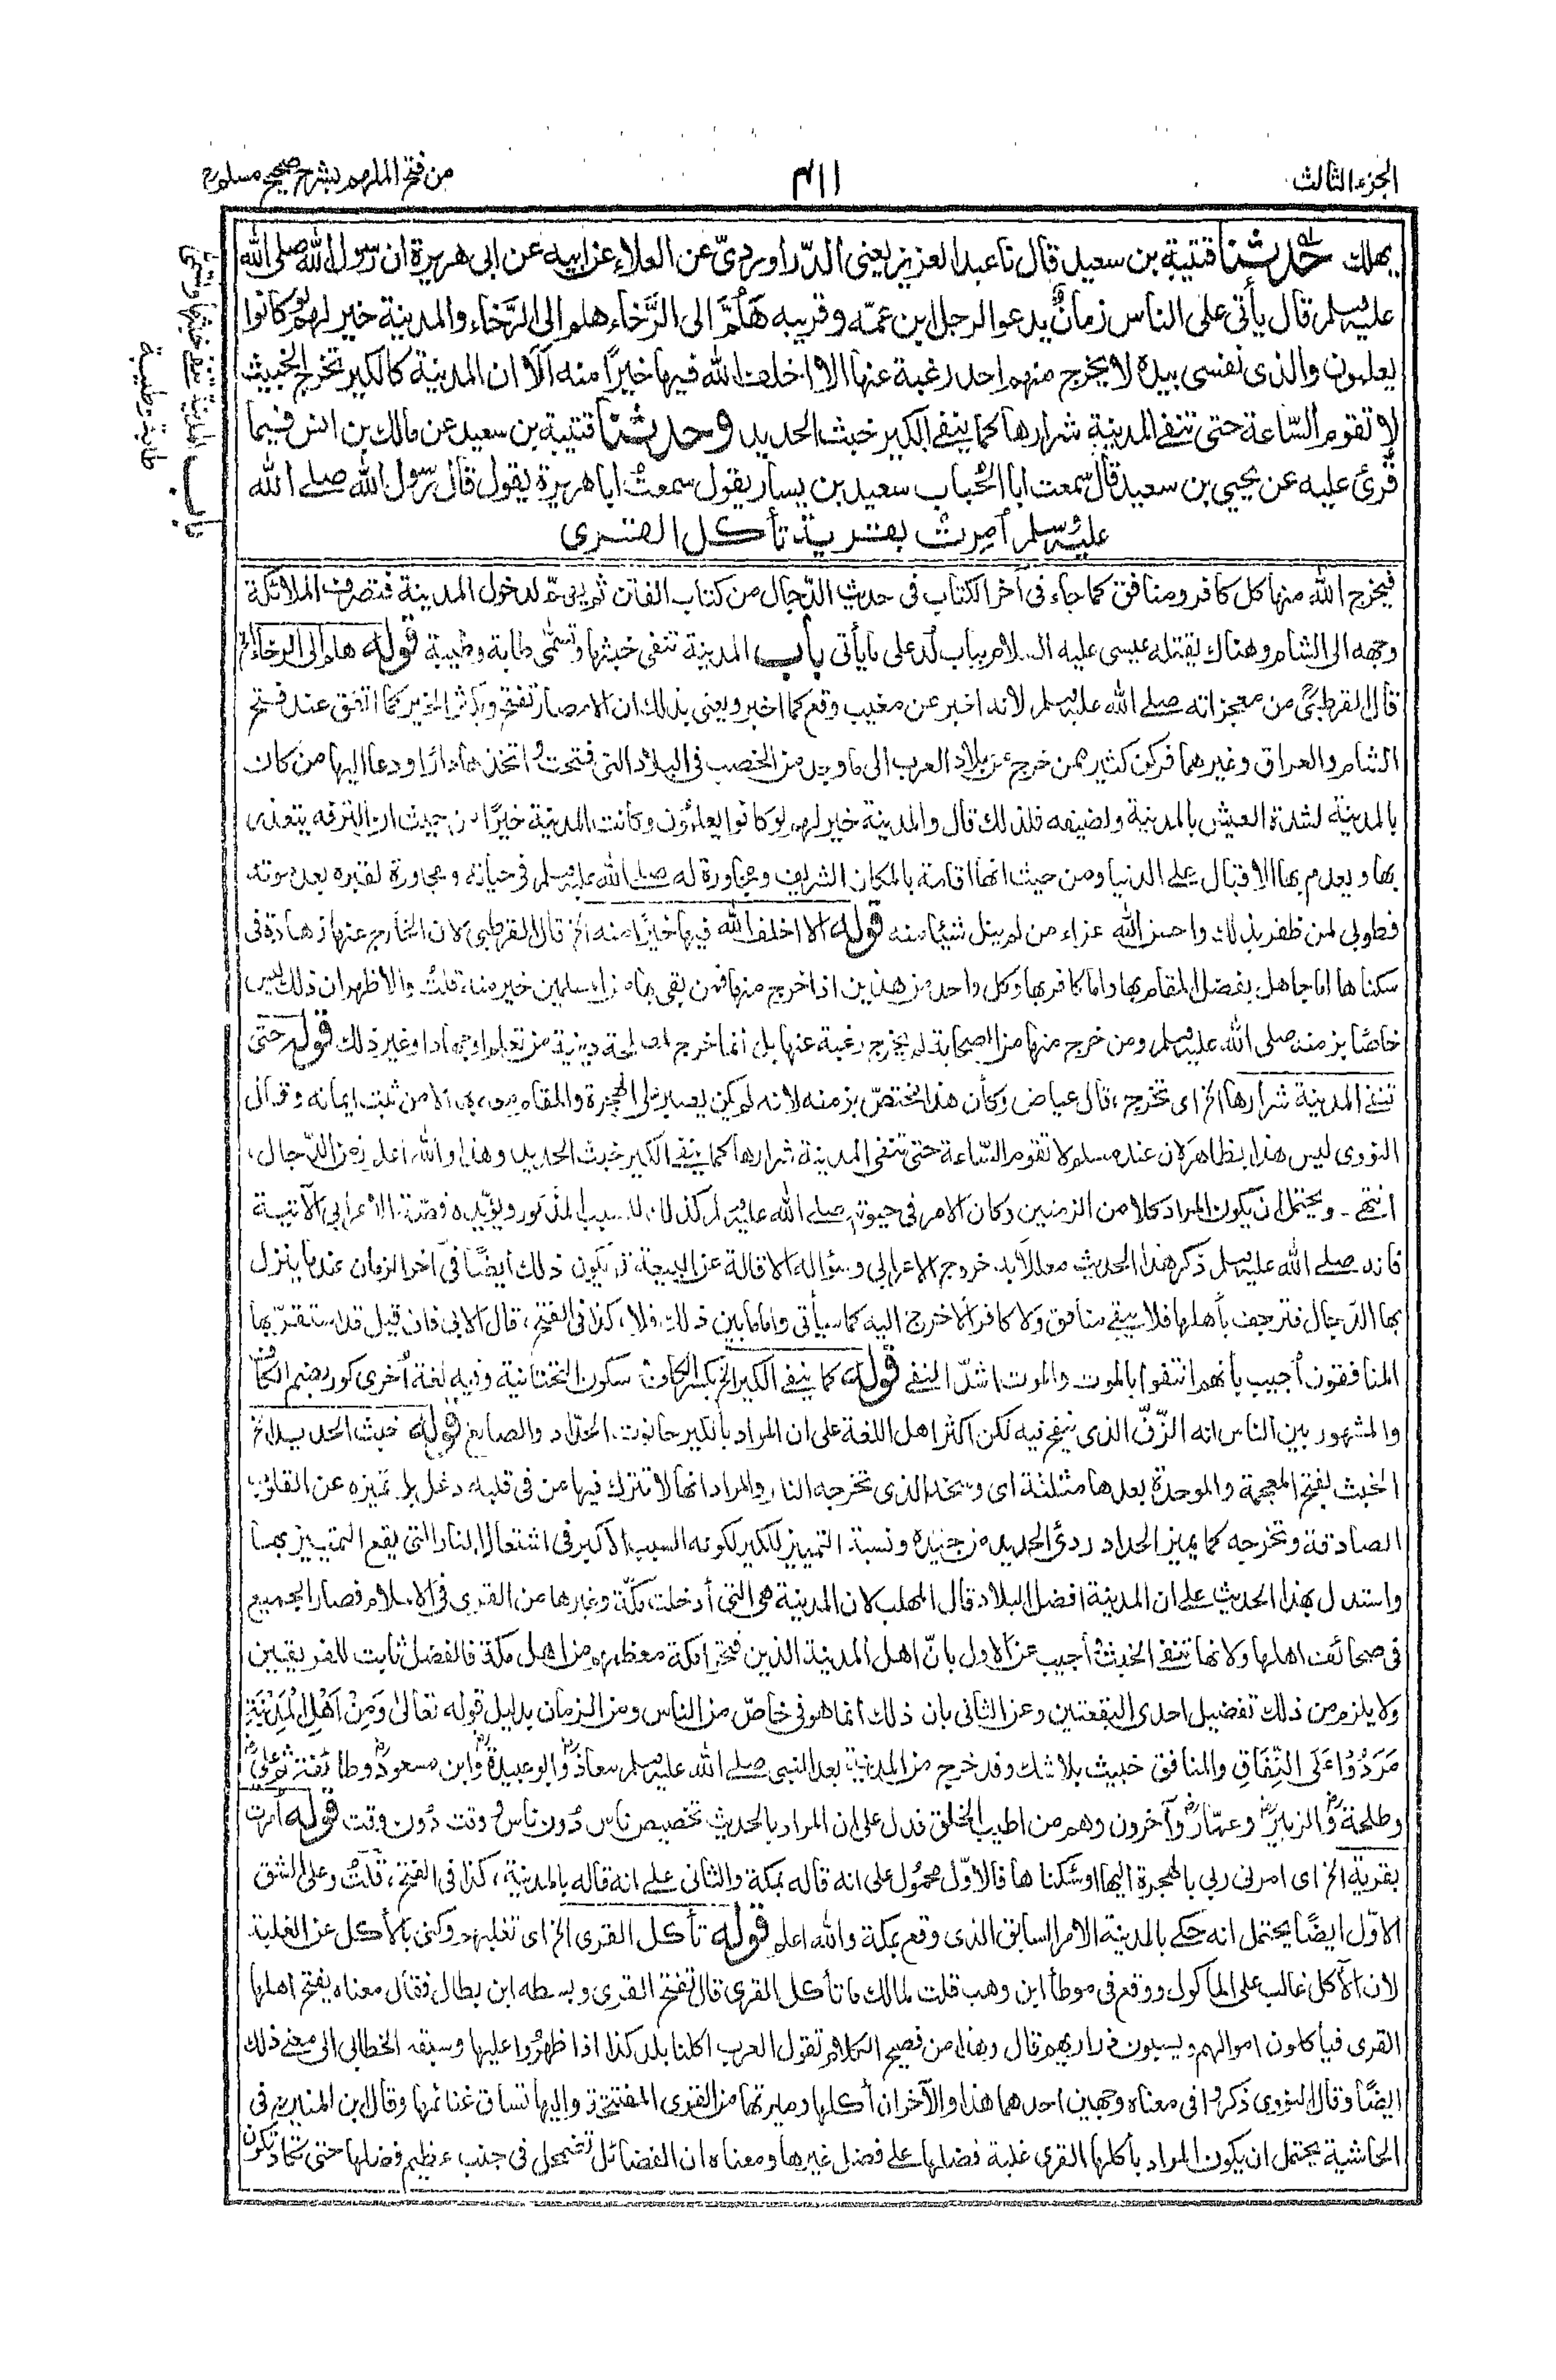 الجزء الثالث
٤١١
من فتح الملهم بشرح صحيح مسلم
باب المدينة تنفى خبثها وتسمى
طابة وطيبة
يهلك حدثنا قتيبة بن سعيد قال نا عبد العزيز يعنى الدراوردىّ عن العلاء عن ابيه عن ابى هريرة ان رسول الله صلى الله
عليه وسلم قال يأتى على الناس زمانٌ يدعو الرجل ابن عمّه وقريبه هَلُمَّ الى الرَّخاء هلم الى الرَّخاء والمدينة خير لهم لو كانوا
يعلمون والذى نفسى بيده لا يخرج منهم احد رغبة عنها الا اخلف الله فيها خيرًا منه ألا ان المدينة كالكير تخرج الخبيث
لا تقوم السّاعة حتى تنفى المدينة شرارها كما ينفى الكير خبث الحديد وحدثنا قتيبة بن سعيد عن مالك بن انس فيما
قُرِئ عليه عن يحيى بن سعيد قال سمعت ابا الحُباب سعيد بن يسار يقول سمعت ابا هريرة يقول قال رسول الله صلے الله
عليه وسلم أمِرتُ بقرية تأكل القرى
فيخرج الله منها كل كافر ومنافق كما جاء فى آخر الكتاب فى حديث الدّجال من كتاب الفتن ثم لدخول المدينة فتصرف الملائكة
وجهه الى الشام وهناك يقتله عيسى عليه السلام بباب لُدّ على ما يأتى باب المدينة تنفى خبثها وتسمّى طابة وطيبة قوله هلم الى الرخاء الخ
قال القرطبىّ من معجزاته صلے الله عليه وسلم لانه اخبر عن مغيب وقع كما اخبر ويعنى بذلك ان الامصار تفتح ويكثر الخير كما اتفق عند فتح
الشام والعراق وغيرهما فركن كثير ممن خرج عن بلاد العرب الى ما وجد من الخصب فى البلاد التى فتحت واتخذها دارًا ودعا اليها من كان
بالمدينة لشدة العيش بالمدينة ولضيقه فلذلك قال والمدينة خير لهم لو كانوا يعلمون وكانت المدينة خيرًا من حيث ان الترفه يتعذر
بها ويعدم بها الاقبال على الدنيا ومن حيث انها اقامة بالمكان الشريف ومجاورة له صلے الله عليه وسلم فى حياته ومجاورة لقبره بعد موته
فطوبى لمن ظفر بذلك واحسن الله عزاء من لم ينل شيئا منه قوله الا اخلف الله فيها خيرًا منه الخ قال القرطبى لان الخارج عنها زهادة فى
سكناها اما جاهل بفضل المقام بها واما كافر بها وكل واحد من هذين اذا خرج منها فمن بقى بها من المسلمين خير منه، قلتُ والاظهر ان ذلك ليس
خاصًا بزمنه صلى الله عليه وسلم ومن خرج منها من الصحابة لم يخرج رغبة عنها بل انما خرج لمصلحة دينية من تعلم او جهاد او غير ذلك قوله حتى
تنفى المدينة شرارها الخ اى تخرج، قال عياض وكأن هذا يختصّ بزمنه لانه لم يكن يصبر على الهجرة والمقام معه بها الا من ثبت ايمانه وقال
النووى ليس هذا بظاهر لان عند مسلم لا تقوم السّاعة حتى تنفى المدينة شرارها كما ينفى الكير خبث الحديد وهذا والله اعلم زمن الدّجال،
انتهى ـ ويحتمل ان يكون المراد كلا من الزمنين وكان الامر فى حيوته صلے الله عليه وسلم كذلك للسبب المذكور ويؤيّده قصّة الاعرابى الآتية
فانه صلے الله عليه وسلم ذكر هذا الحديث معللا به خروج الاعرابى وسؤاله الاقالة عن البيعة ثم يكون ذلك أيضًا فى آخر الزمان عندما ينزل
بها الدّجال فترجف بأهلها فلا يبقى منافق ولا كافر الا خرج اليه كما سيأتى واما ما بين ذلك فلا، كذا فى الفتح، قال الابى فان قيل قد استقرّ بها
المنافقون أجيب بأنهم انتفوا بالموت والموت اشدّ النفى قوله كما ينفى الكير الخ بكسر الكاف سكون التحتانية وفيه لغة أخرى كور بضم الكاف
والمشهور بين الناس انه الزّقّ الذى ينفخ فيه لكن اكثر اهل اللغة على ان المراد بالكير حانوت الحدّاد والصايغ قوله خبث الحديد الخ
الخبث بفتح المعجمة والموحدة بعدها مثلثة اى وسخه الذى تخرجه النار والمراد انها لا تترك فيها من فى قلبه دغل بل تميزه عن القلوب
الصادقة وتخرجه كما يميز الحداد ردئ الحديد من جيّده ونسبة التمييز للكير لكونه السبب الاكبر فى اشتعال النار التى يقع التمييز بها
واستدل بهذا الحديث على ان المدينة افضل البلاد قال المهلب لان المدينة هى التى أدخلت مكّة وغيرها من القرى فى الاسلام فصار الجميع
فى صحائف اهلها ولانها تنفى الخبث أجيب عن الاول بانّ اهل المدينة الذين فتحوا مكة معظمهم من اهل مكة فالفضل ثابت للفريقين
ولا يلزم من ذلك تفضيل احدى البقعتين وعن الثانى بان ذلك انما هو فى خاصّ من الناس ومن الزمان بدليل قوله تعالى وَمِنْ اَهْلِ الْمَدِيْنَةِ
مَرَدُوْا عَلَى النِّفَاقِ والمنافق خبيث بلا شك وقد خرج من المدينة بعد النبى صلے الله عليه وسلم معاذ وابو عبيدة وابن مسعود وطائفة ثم علىّ
وطلحة والزبير وعمّار وآخرون وهم من اطيب الخلق فدل على ان المراد بالحديث تخصيص ناس دُون ناس ووقت دُون وقت قوله أمرت
بقرية الخ اى امرنى ربى بالهجرة اليها او سُكناها فالاوّل محمُول على انه قاله بمكة والثانى على انه قاله بالمدينة، كذا فى الفتح، قلتُ وعلى الشق
الاوّل ايضًا يحتمل انه حكى بالمدينة الامر السابق الذى وقع بمكة والله اعلم قوله تأكل القرى الخ اى تغلبهم وكنى بالأكل عن الغلبة
لان الآكل غالب على المأكول ووقع فى موطأ ابن وهب قلت لمالك ما تأكل القرى قال تفتح القرى وبسطه ابن بطال فقال معناه يفتح اهلها
القرى فيأكلون اموالهم ويسبون ذراريهم قال وهذا من فصيح الكلام تقول العرب اكلنا بلد كذا اذا ظهرُوا عليها وسبقه الخطابى الى معنى ذلك
ايضًا وقال النووى ذكروا فى معناه وجهين احدهما هذا والآخر ان أكلها وميرتها من القرى المفتتحة واليها تساق غنائمها وقال ابن المنير فى
الحاشية يحتمل ان يكون المراد بأكلها القرى غلبة فضلها على فضل غيرها ومعناه ان الفضائل تضمحل فى جنب عظيم فضلها حتى تكاد تكون